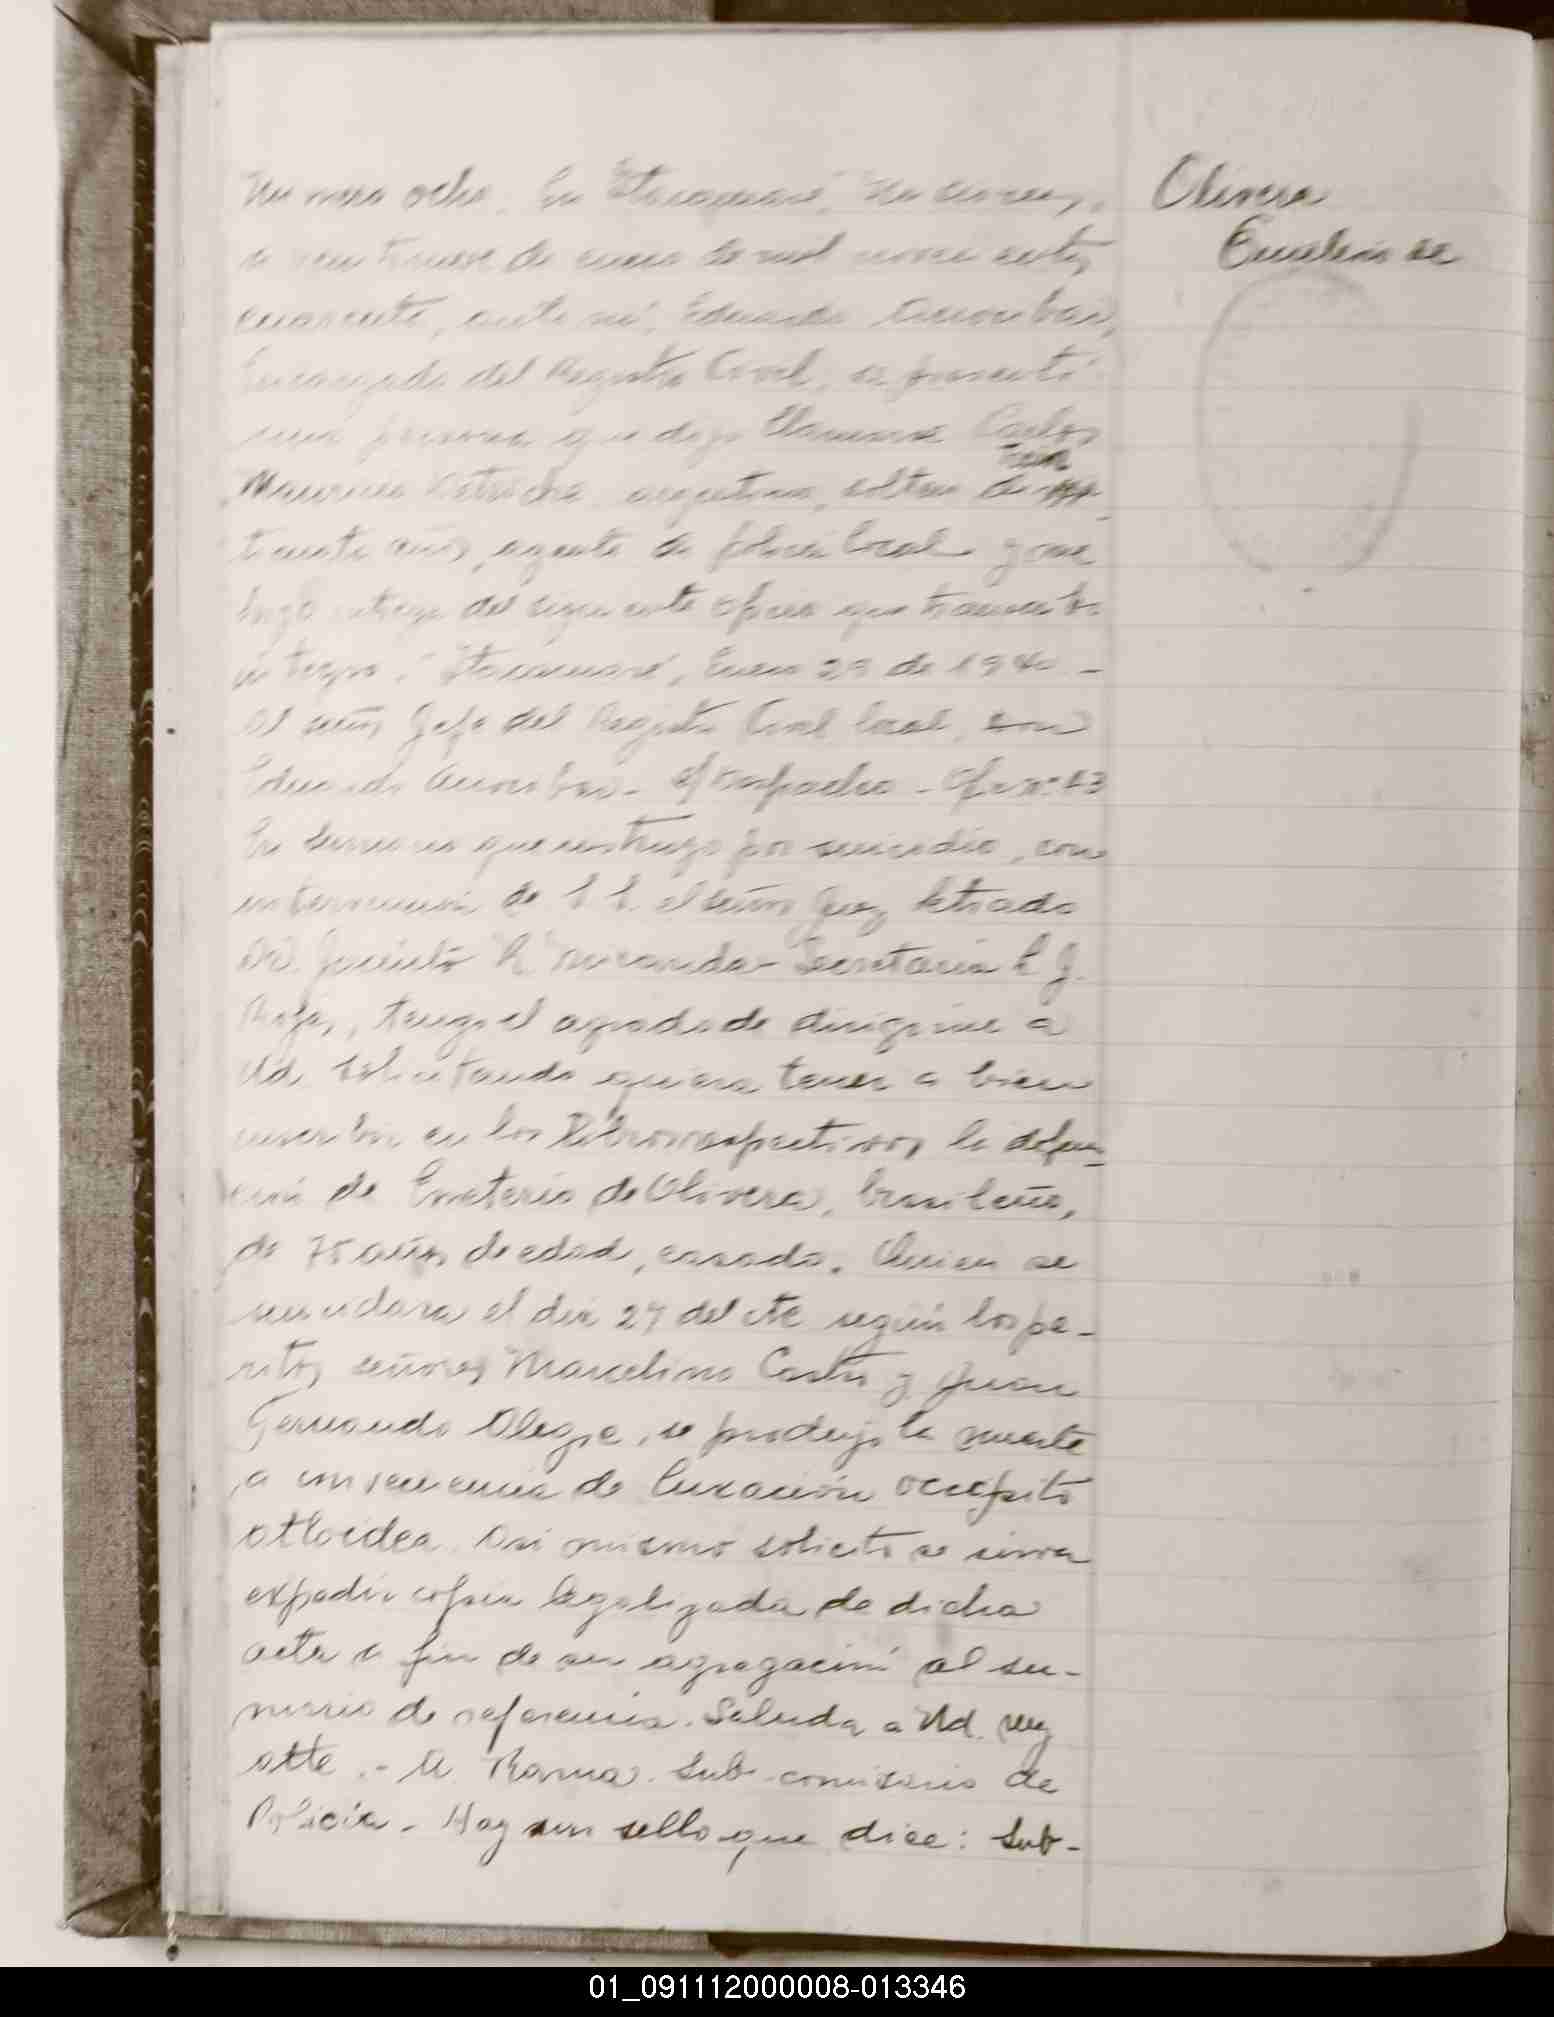 Numero ocho. En "Itacaruaré", Misiones,
a veintinueve de enero de mil novecientos
cuarenta, ante mí, Eduardo
Encargado del Registro Civil, se presentó
una persona que dijo llamarse Carlos
Mauricio argentino, soltero de
treinta
años, agente de policia local y me
hizo entrega del siguiente oficio que transcribo
integro. "Itacaruaré", Enero 29 de 1940 -
Al señor Jefe del Registro Civil local, don
Eduardo - S/ despacho - Of. nº 43
En sumario que instruyo por suicidio, con
intervención de S. S. el señor Juez letrado
Dr. Jacinto R. Miranda - Secretaria L J.
Rojas, tengo el agrado de dirigirme a
Ud. solicitando quiera tener a bien
inscribir en los Libros respectivos, la defun-
ción de Emeterio de Olivera, brasileño,
de 75 años de edad, casado. Quien se
suicidara el dia 27 del cte según los pe-
ritos señores Marcelino Castro y Juan
Fernando Alegre, se produjo la muerte
a consecuencia de luxación occipito
atloidea. Asi mismo solicito se sirva
expedir copia legalizada de dicha
acta a fin de su agregación al su-
mario de referencia. Saluda a Ud. muy
atte. - A. Rama. Sub-comisario de
Policía. - Hay un sello que dice: Sub-
Olivera
de
01_091112000008-013346